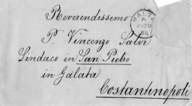 Reverendissimo
P. Vincenzo Sator
Sindaco in San Pietro
in Galata
Costantinopoli